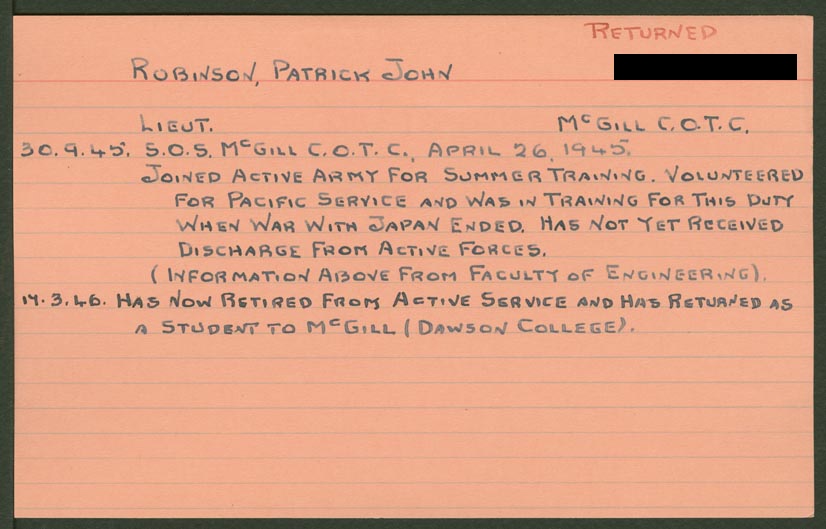 RETURNED
ROBINSON, PATRICK JOHN
LIEUT. McGILL C.O.T.C.
30.9.45. S.O.S. McGILL C.O.T.C., APRIL 26, 1945.
JOINED ACTIVE ARMY FOR SUMMER TRAINING. VOLUNTEERED
FOR PACIFIC SERVICE AND WAS IN TRAINING FOR THIS DUTY
WHEN WAR WITH JAPAN ENDED. HAS NOT YET RECEIVED
DISCHARGE FROM ACTIVE FORCES.
(INFORMATION ABOVE FROM FACULTY OF ENGINEERING).
14.3.46. HAS NOW RETIRED FROM ACTIVE SERVICE AND HAS RETURNED AS
A STUDENT TO McGILL (DAWSON COLLEGE).